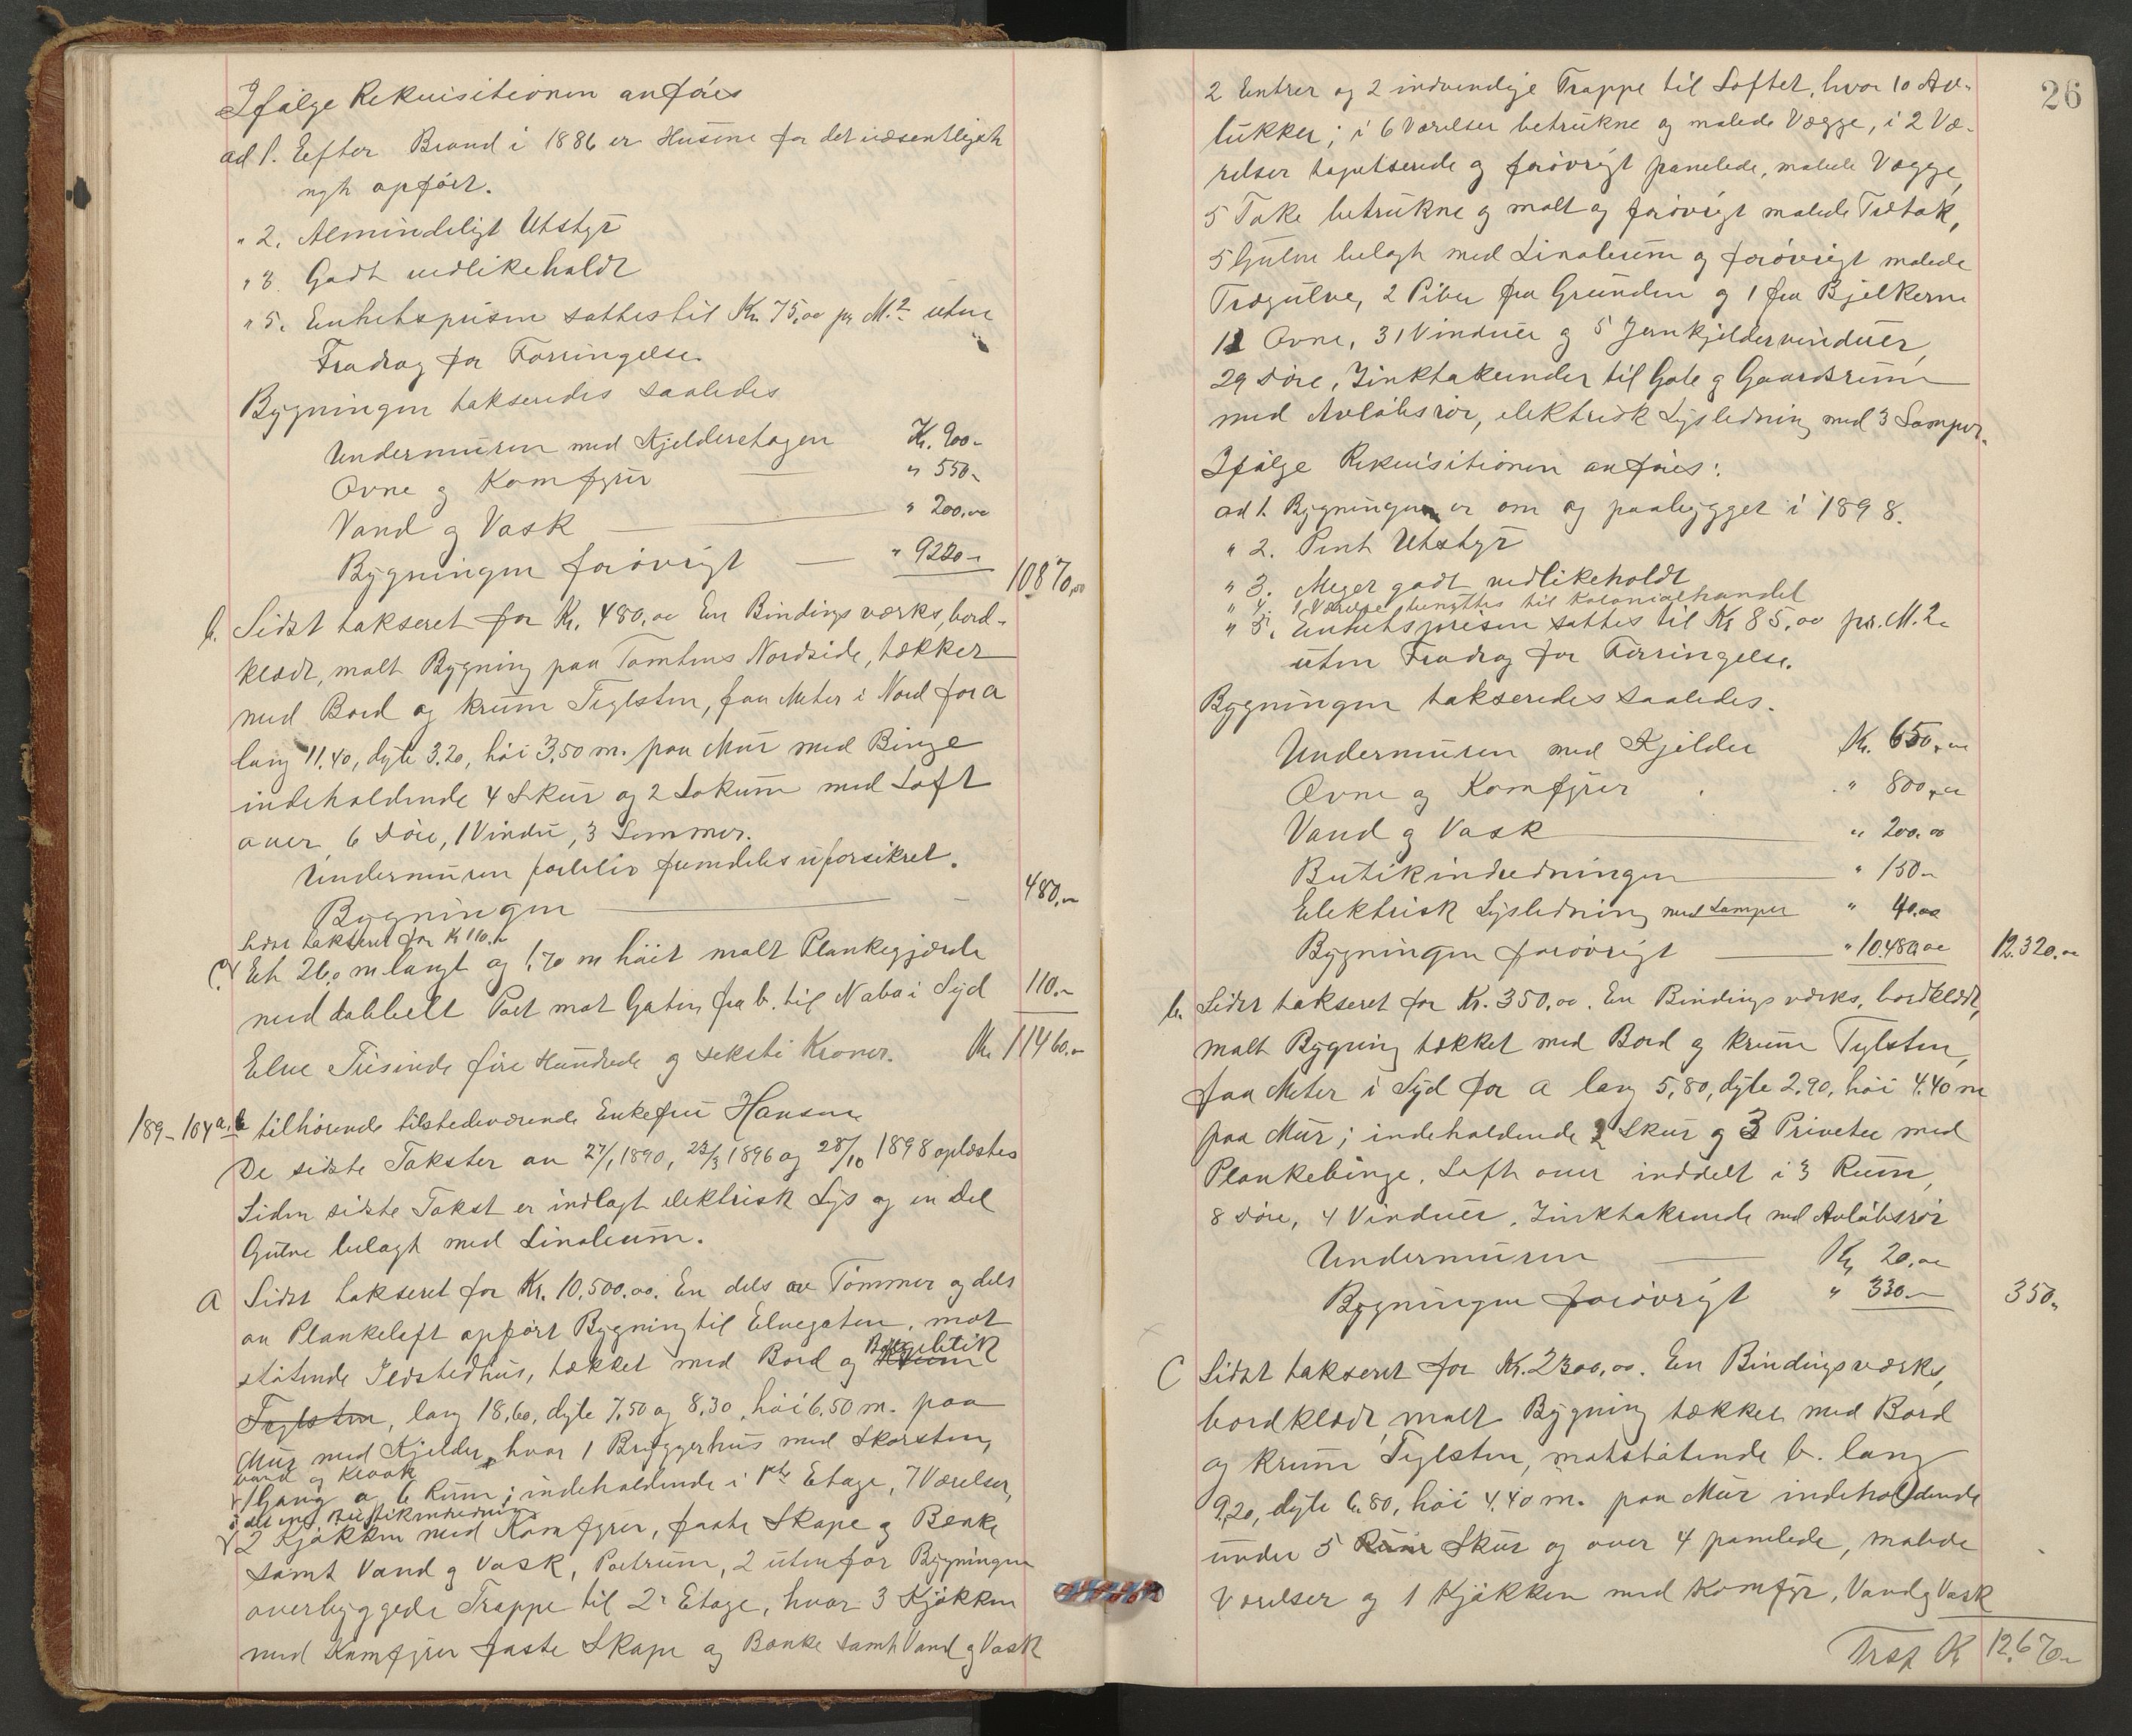 Ifølge Rekvisitionen anføres
ad 1. Efter Brand i 1886 er Husene for det væsentligste
nyt opført.
" 2. Almindeligt Utstyr
" 3. Godt vedlikeholdt
" 5. Enhetsprisen sattes til Kr. 75,00 pr M.² uten
Fradrag for Forringelse.
Bygningen takseredes saaledes
Undermuren med Kjelderetagen Kr. 900.-
Ovne og Komfyrer " 550.-
Vand og Vask " 200.00
Bygningen forøvrigt " 9220.- 10870,00
b. Sidst takseret for Kr. 480,00 En Bindingsværks, bord-
klædt, malt Bygning paa Tomtens Nordside, tækket
med Bord og krum Teglsten, faa Meter i Nord for a
lang 11.40, dyb 3.20, høi 3,50 m. paa Mur med Binge
indeholdende 4 Skur og 2 Lokum med Loft
over, 6 Døre, 1 Vindu, 3 Lemmer.
Undermuren forblir fremdeles uforsikret.
Bygningen 480,-
Sidst takseret for K 110.-
c. Et 26,0 m langt og 1,70 m høit malt Plankegjærde
med dobbelt Port mot Gaten, fra b. til Nabo i Syd 110.-
Elve Tusinde fire Hundrede og seksti Kroner. Kr. 11460.-
189-104 a. b tilhørende tilstedeværende Enkefru Hansen
De sidste Takster av 27/1 1890, 23/3 1896 og 28/10 1898 oplæstes
Siden sidste Takst er indlagt elektrisk Lys og en Del
Gulve belagt med Linoleum.
a Sidst takseret for Kr. 10,500.00. En dels av Tømmer og dels
av Plankeloft opført Bygning til Elvegaten, mot
støtende Ildstedhus, tækket med Bord og krum
Teglsten, lang 18,60, dyb 7,50 og 8,30, høi 6,50 m. paa
Mur med Kjelder, hvor 1 Bryggerhus med Skorsten,
vand og kloak
1 Gang og 6 Rum; indeholdende i 1ste Etage, 7 Værelser,
2 Kjøkken med Komfyrer, faste Skape og Benke
samt Vand og Vask, Portrum, 2 utenfor Bygningen
overbyggede Trappe til 2. Etage, hvor 3 Kjøkken
med Komfyrer faste Skape og Benke samt Vand og Vask
26
2 Entrer og 2 indvendige Trappe til Loftet, hvor 10 Av-
lukker; i 6 Værelser betrukne og malede Vægge, i 2 Væ-
relser tapetserede og forøvrigt panelede, malede Vægge,
5 Take betrukne og malt og forøvrigt malede Trætak,
5 Gulve belagt med Linoleum og forøvrigt malede
Trægulve, 2 Piber fra Grunden og 1 fra Bjelkerne
Ovne, 31 Vinduer og 5 Jernkjeldervinduer,
29 Døre, Zinktakrender til Gate og Gaardsrum
med Avløbsrør, elektrisk Lysledning med 3 Lamper.
Ifølge Rekvisitionen anføres:
ad 1. Bygningen er om og paabygget i 1898.
" 2. Pent Utstyr
" 3. Meget godt vedlikeholdt
" 4. 1 Værelse benyttes til Kolonialhandel
" 5. Enhetsprisen sattes til Kr 85,00 pr. M.²
uten Fradrag for Forringelse.
Bygningen takseredes saaledes.
Undermuren med Kjelder Kr. 650,00
Ovne og Komfyrer " 800,00
Vand og Vask " 200.00
Butikindredningen " 150.-
Elektrisk Lysledning med Lamper " 40.00
Bygningen forøvrigt " 10.480,00 12.320.00
b. Sidst takseret for Kr. 350,00. En Bindingsværks, bordklædt,
malt Bygning tækket med Bord og krum Teglsten,
faa Meter i Syd for a lang 5,80, dyb 2.90, høi 4.40 m
paa Mur; indeholdende 2 Skur og 3 Priveter med
Plankebinge, Loft over inddelt i 3 Rum,
8 Døre, 4 Vinduer, Zinktakrende med Avløbsrør
Undermuren Kr. 20.00
Bygningen forøvrigt " 330.- 350.-
c Sidst takseret for Kr. 2300,00. En Bindingsværks,
bordklædt, malt Bygning tækket med Bord
og krum Teglsten, motstøtende b. lang
9,20, dyb 6.80, høi 4.40 m. paa Mur indeholdende
under 5 Rum Skur og over 4 panelede, malede
Værelser og 1 Kjøkken med Komfyr, Vand og Vask
Trsp K 12.670.-